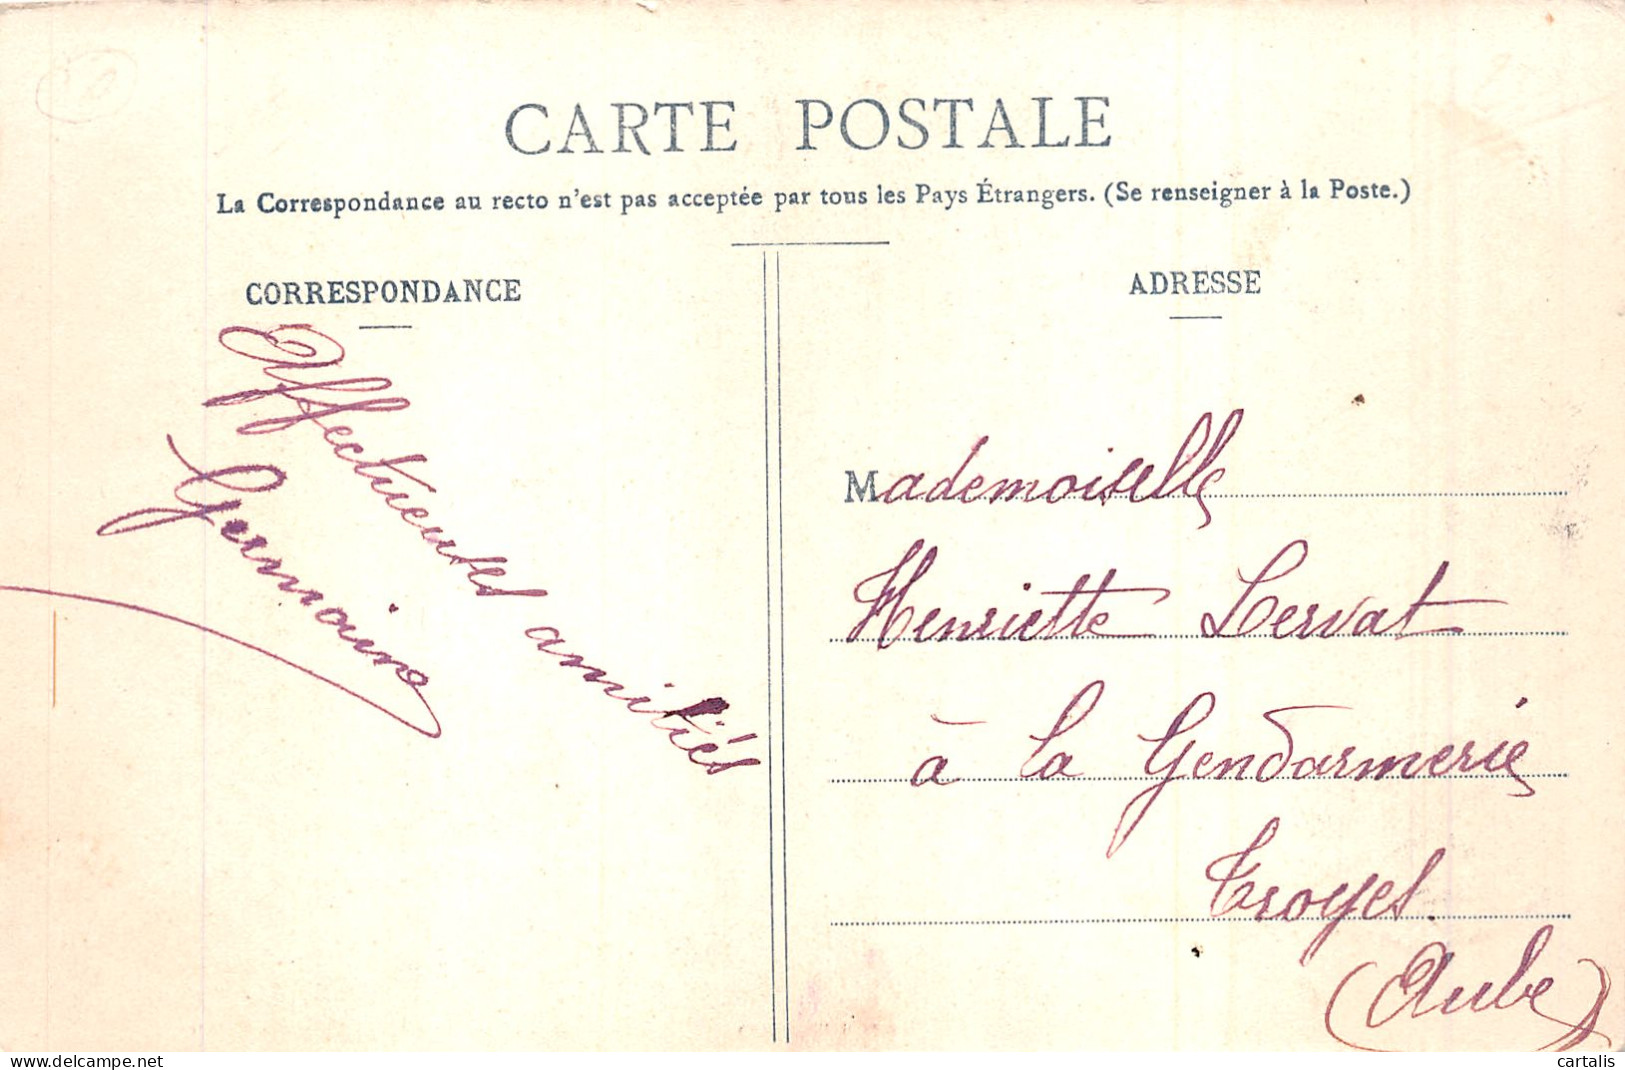 CARTE POSTALE
La Correspondance au recto n'est pas acceptée par tous les Pays Étrangers. (Se renseigner à la Poste.)
CORRESPONDANCE
Affectueuses amitiés
Germaine
ADRESSE
Mademoiselle
Henriette Lervat
à la Gendarmerie
Troyes.
(Aube)
www.delcampe.net
cartalis